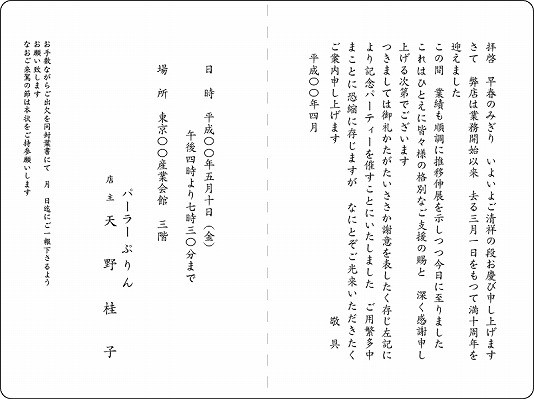 拝啓　早春のみぎり　いよいよご清祥の段お慶び申し上げます
さて　弊店は業務開始以来　去る三月一日をもつて満十周年を
迎えました
この間　業績も順調に推移伸展を示しつつ今日に至りました
これはひとえに皆々様の格別なご支援の賜と　深く感謝申し
上げる次第でございます
つきましては御礼かたがたいささか謝意を表したく存じ左記に
より記念パーティーを催すことにいたしました　ご用繁多中
まことに恐縮に存じますが　なにとぞご光来いただきたく
ご案内申し上げます
敬具
平成〇〇年四月
日　時　平成〇〇年五月十日（金）
午後四時より七時三〇分まで
場　所　東京〇〇産業会館　三階
パーラーぷりん
店主　天野桂子
お手数ながらご出欠を同封葉書にて　月　日迄にご一報下さるよう
お願い致します
なおご来駕の節は本状をご持参願いします